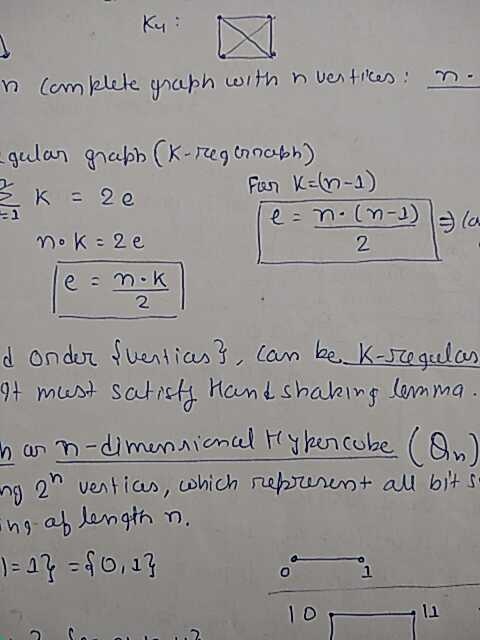 K4 :
n complete graph with n vertices : n .
gular graph (K-reg Graph)
Σ K = 2e
i=1
For K=(n-1)
n.K = 2e
e = n.(n-1) / 2 ⇒
e = n.K / 2
d order {vertices}, can be K-regular
It must satisfy Handshaking lemma.
n-dimensional Hypercube (Qn)
ng 2^n vertices, which represent all bit s
ing of length n.
|=1} = {0,1}
0 1
10 11